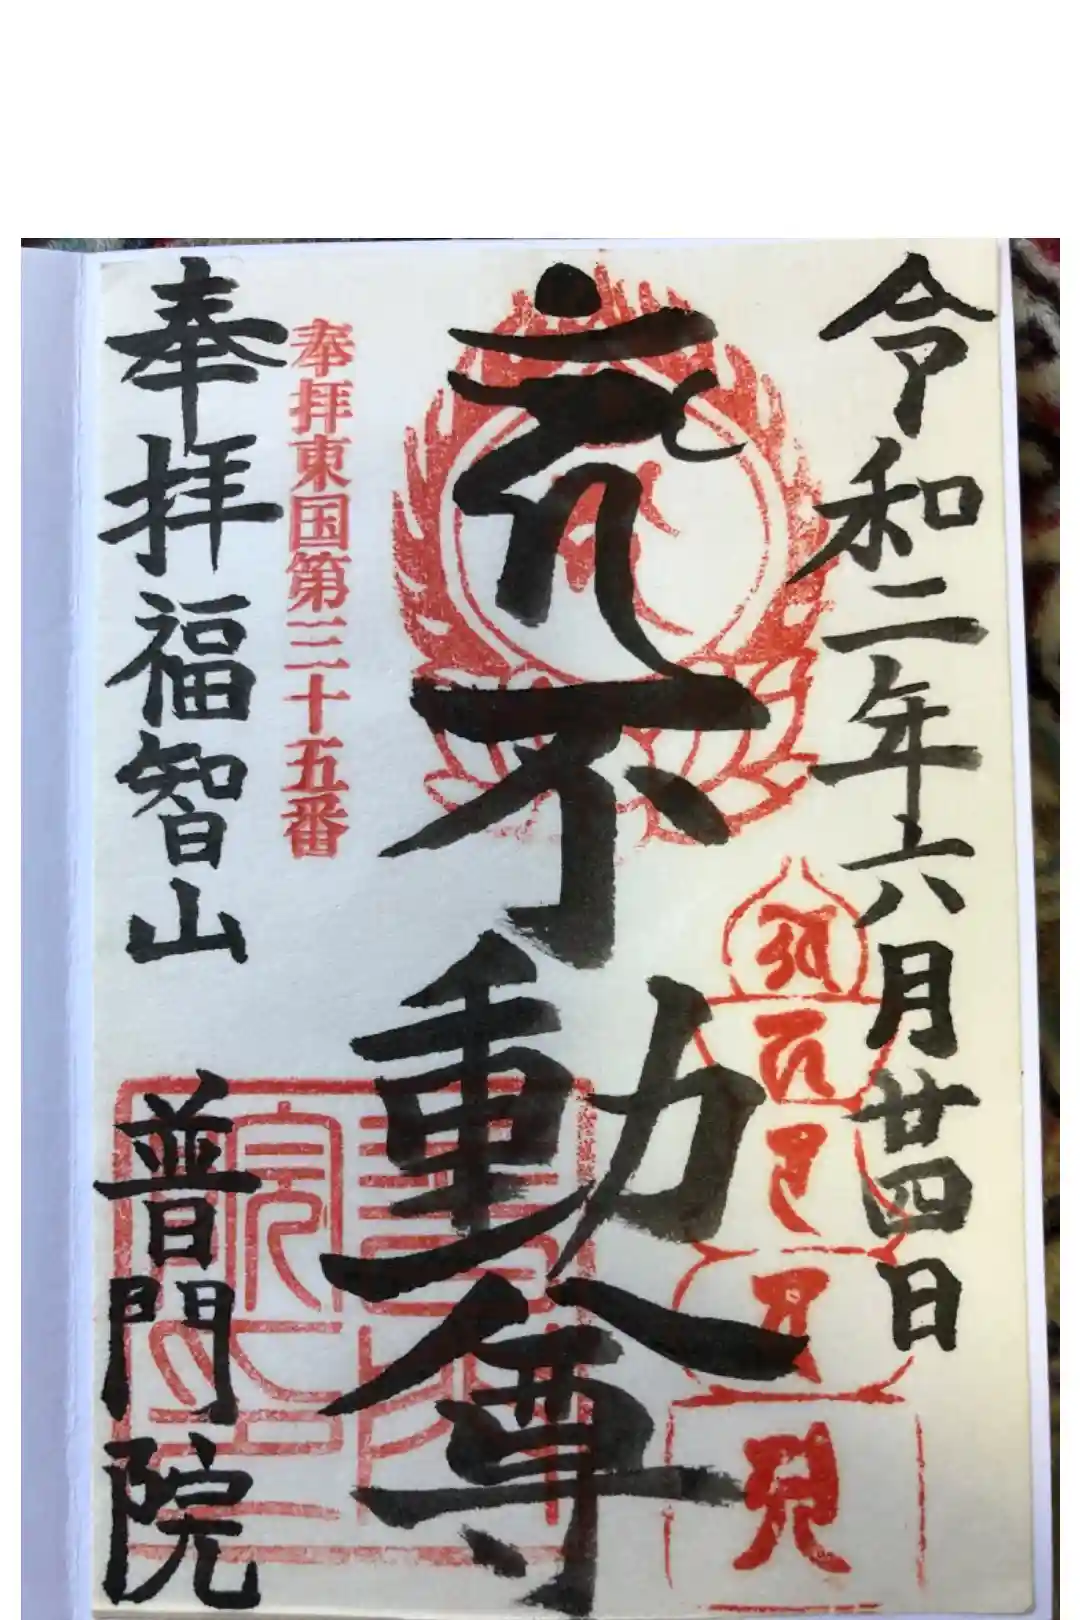 令和二年六月廿四日
不動尊
奉拝東国第三十五番
奉拝福智山 普門院